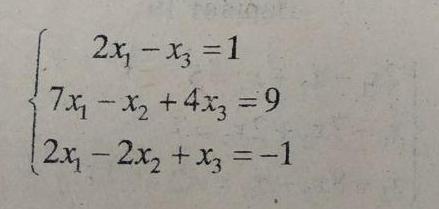 2x₁ − x₃ = 1
7x₁ − x₂ + 4x₃ = 9
2x₁ − 2x₂ + x₃ = −1